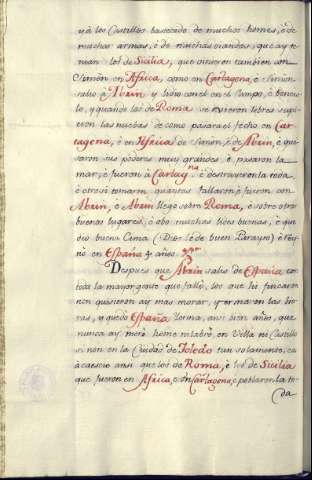 y à los Castillos bastecido de muchos homes, è de
muchas armas, è de muchas viandas, que ay te
nian los de Sicilia, que vinieron tambien con
Simon en Africa, como en Cartagena, è Simon
salio à Abrin y lidio con el en el Campo, è vencio
lo, y quando los de Roma se vieron libres supi
eron las nuebas de como pasara el fecho en Car
tagena, è en Africa de Simon, è de Abrin, è gui
saron sus poderes muy grandes, è pasaron la
mar, è fueron à Cartagna è destruyeronla toda
è otro si tomaron quantos fallaron, è fueron con
Abrin, è Abrin llegò sobre Roma, è sobre otros
buenos lugares, è obo muchas lides buenas, è gua
diò buena Cima (Dios le dè buen Parayso) è rey
nò en España 4 años.
Despues que Abrin saliò de España con
toda la mayor gente que fallò, los que hi fincaron
non quisieron ay mas morar, y ermaron las tie
ras, y quedò España Yerma, ansi bien años, que
nunca ay morò home nin labrò, en Villa nin Castillo
si non en la Ciudad de Toledo tan solamente, ca
à caescio ansi que los de Roma, è los de Sicilia
que fueron en Africa, è en Cartagena, è poblaron la to
da